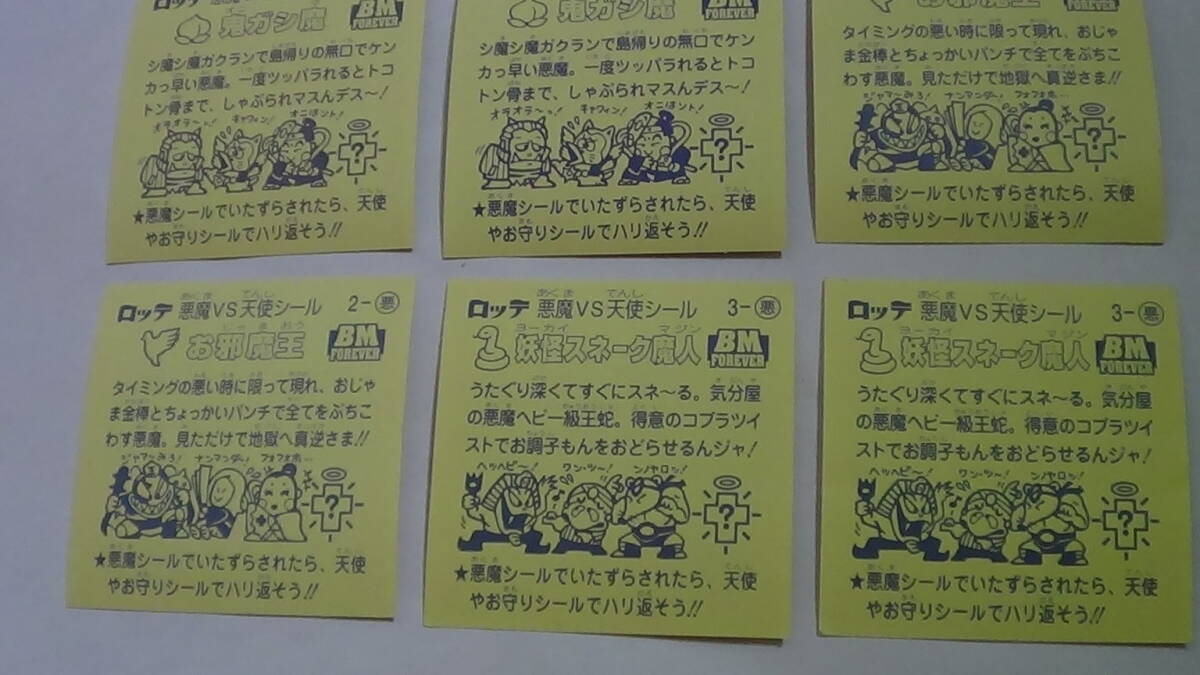 ロッテ
鬼ガシ魔
BM
FOREVER
シ魔シ魔ガクランで島帰りの無口でケン
カっ早い悪魔。一度ツッパラれるとトコ
トン骨まで、しゃぶられマスんデス〜!
オラオラ〜ッ! キャウィン! オニほント!
?
★悪魔シールでいたずらされたら、天使
やお守りシールでハリ返そう!!
ロッテ
鬼ガシ魔
BM
FOREVER
シ魔シ魔ガクランで島帰りの無口でケン
カっ早い悪魔。一度ツッパラれるとトコ
トン骨まで、しゃぶられマスんデス〜!
オラオラ〜ッ! キャウィン! オニほント!
?
★悪魔シールでいたずらされたら、天使
やお守りシールでハリ返そう!!
お邪魔王
FOREVER
タイミングの悪い時に限って現れ、おじゃ
ま金棒とちょっかいパンチで全てをぶちこ
わす悪魔。見ただけで地獄へ真逆さま!!
ジャマーみろ! ナンマンダ〜! フォフォホ…
?
★悪魔シールでいたずらされたら、天使
やお守りシールでハリ返そう!!
ロッテ 悪魔VS天使シール 2-悪
お邪魔王
BM
FOREVER
タイミングの悪い時に限って現れ、おじゃ
ま金棒とちょっかいパンチで全てをぶちこ
わす悪魔。見ただけで地獄へ真逆さま!!
ジャマーみろ! ナンマンダ〜! フォフォホ…
?
★悪魔シールでいたずらされたら、天使
やお守りシールでハリ返そう!!
ロッテ 悪魔VS天使シール 3-悪
妖怪スネーク魔人
BM
FOREVER
うたぐり深くてすぐにスネ〜る。気分屋
の悪魔ヘビー級王蛇。得意のコブラツイ
ストでお調子もんをおどらせるんジャ!
ヘッヘビ〜! ワン・ツ〜! ンノヤロッ!
?
★悪魔シールでいたずらされたら、天使
やお守りシールでハリ返そう!!
ロッテ 悪魔VS天使シール 3-悪
妖怪スネーク魔人
BM
FOREVER
うたぐり深くてすぐにスネ〜る。気分屋
の悪魔ヘビー級王蛇。得意のコブラツイ
ストでお調子もんをおどらせるんジャ!
ヘッヘビ〜! ワン・ツ〜! ンノヤロッ!
?
★悪魔シールでいたずらされたら、天使
やお守りシールでハリ返そう!!